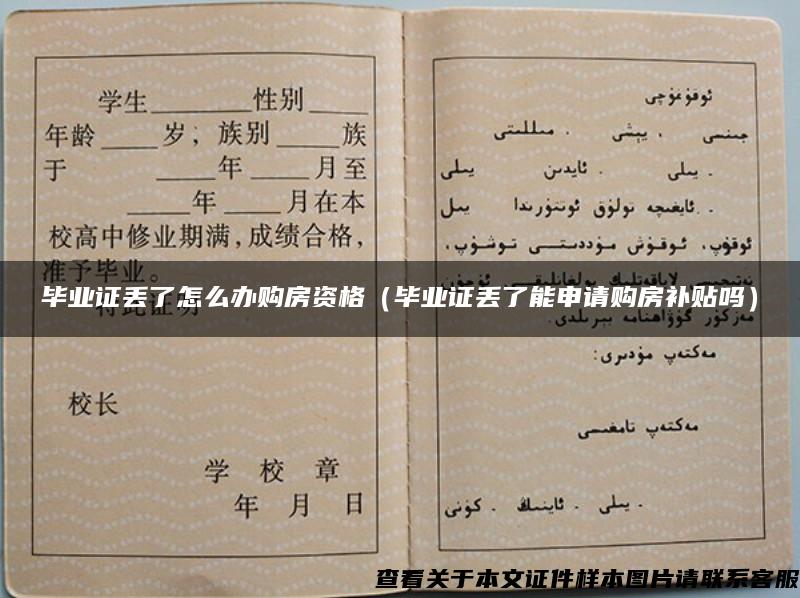 学生____性别____
年龄____岁；族别____族
于 ____年____月至
____年____月在本
校高中修业期满,成绩合格,
准予毕业。
特此证明
校长
学 校 章
年 月 日
ئوقۇغۇچى
جىنسى ، يېشى ، مىللىتى
يىلى ، ئايدىن يىلى
، ئايغىچە تولۇق ئوتتۇرىدا يىل
ئوقۇپ، ئوقۇش مۇددىتى توشۇپ،
مەزكۇر گۇۋاھنامە بېرىلدى.
مەكتەپ مۇدىرى:
مەكتەپ تامغىسى
، يىلى ، ئاينىڭ ، كۈنى
毕业证丢了怎么办购房资格（毕业证丢了能申请购房补贴吗）
查看关于本文证件样本图片请联系客服